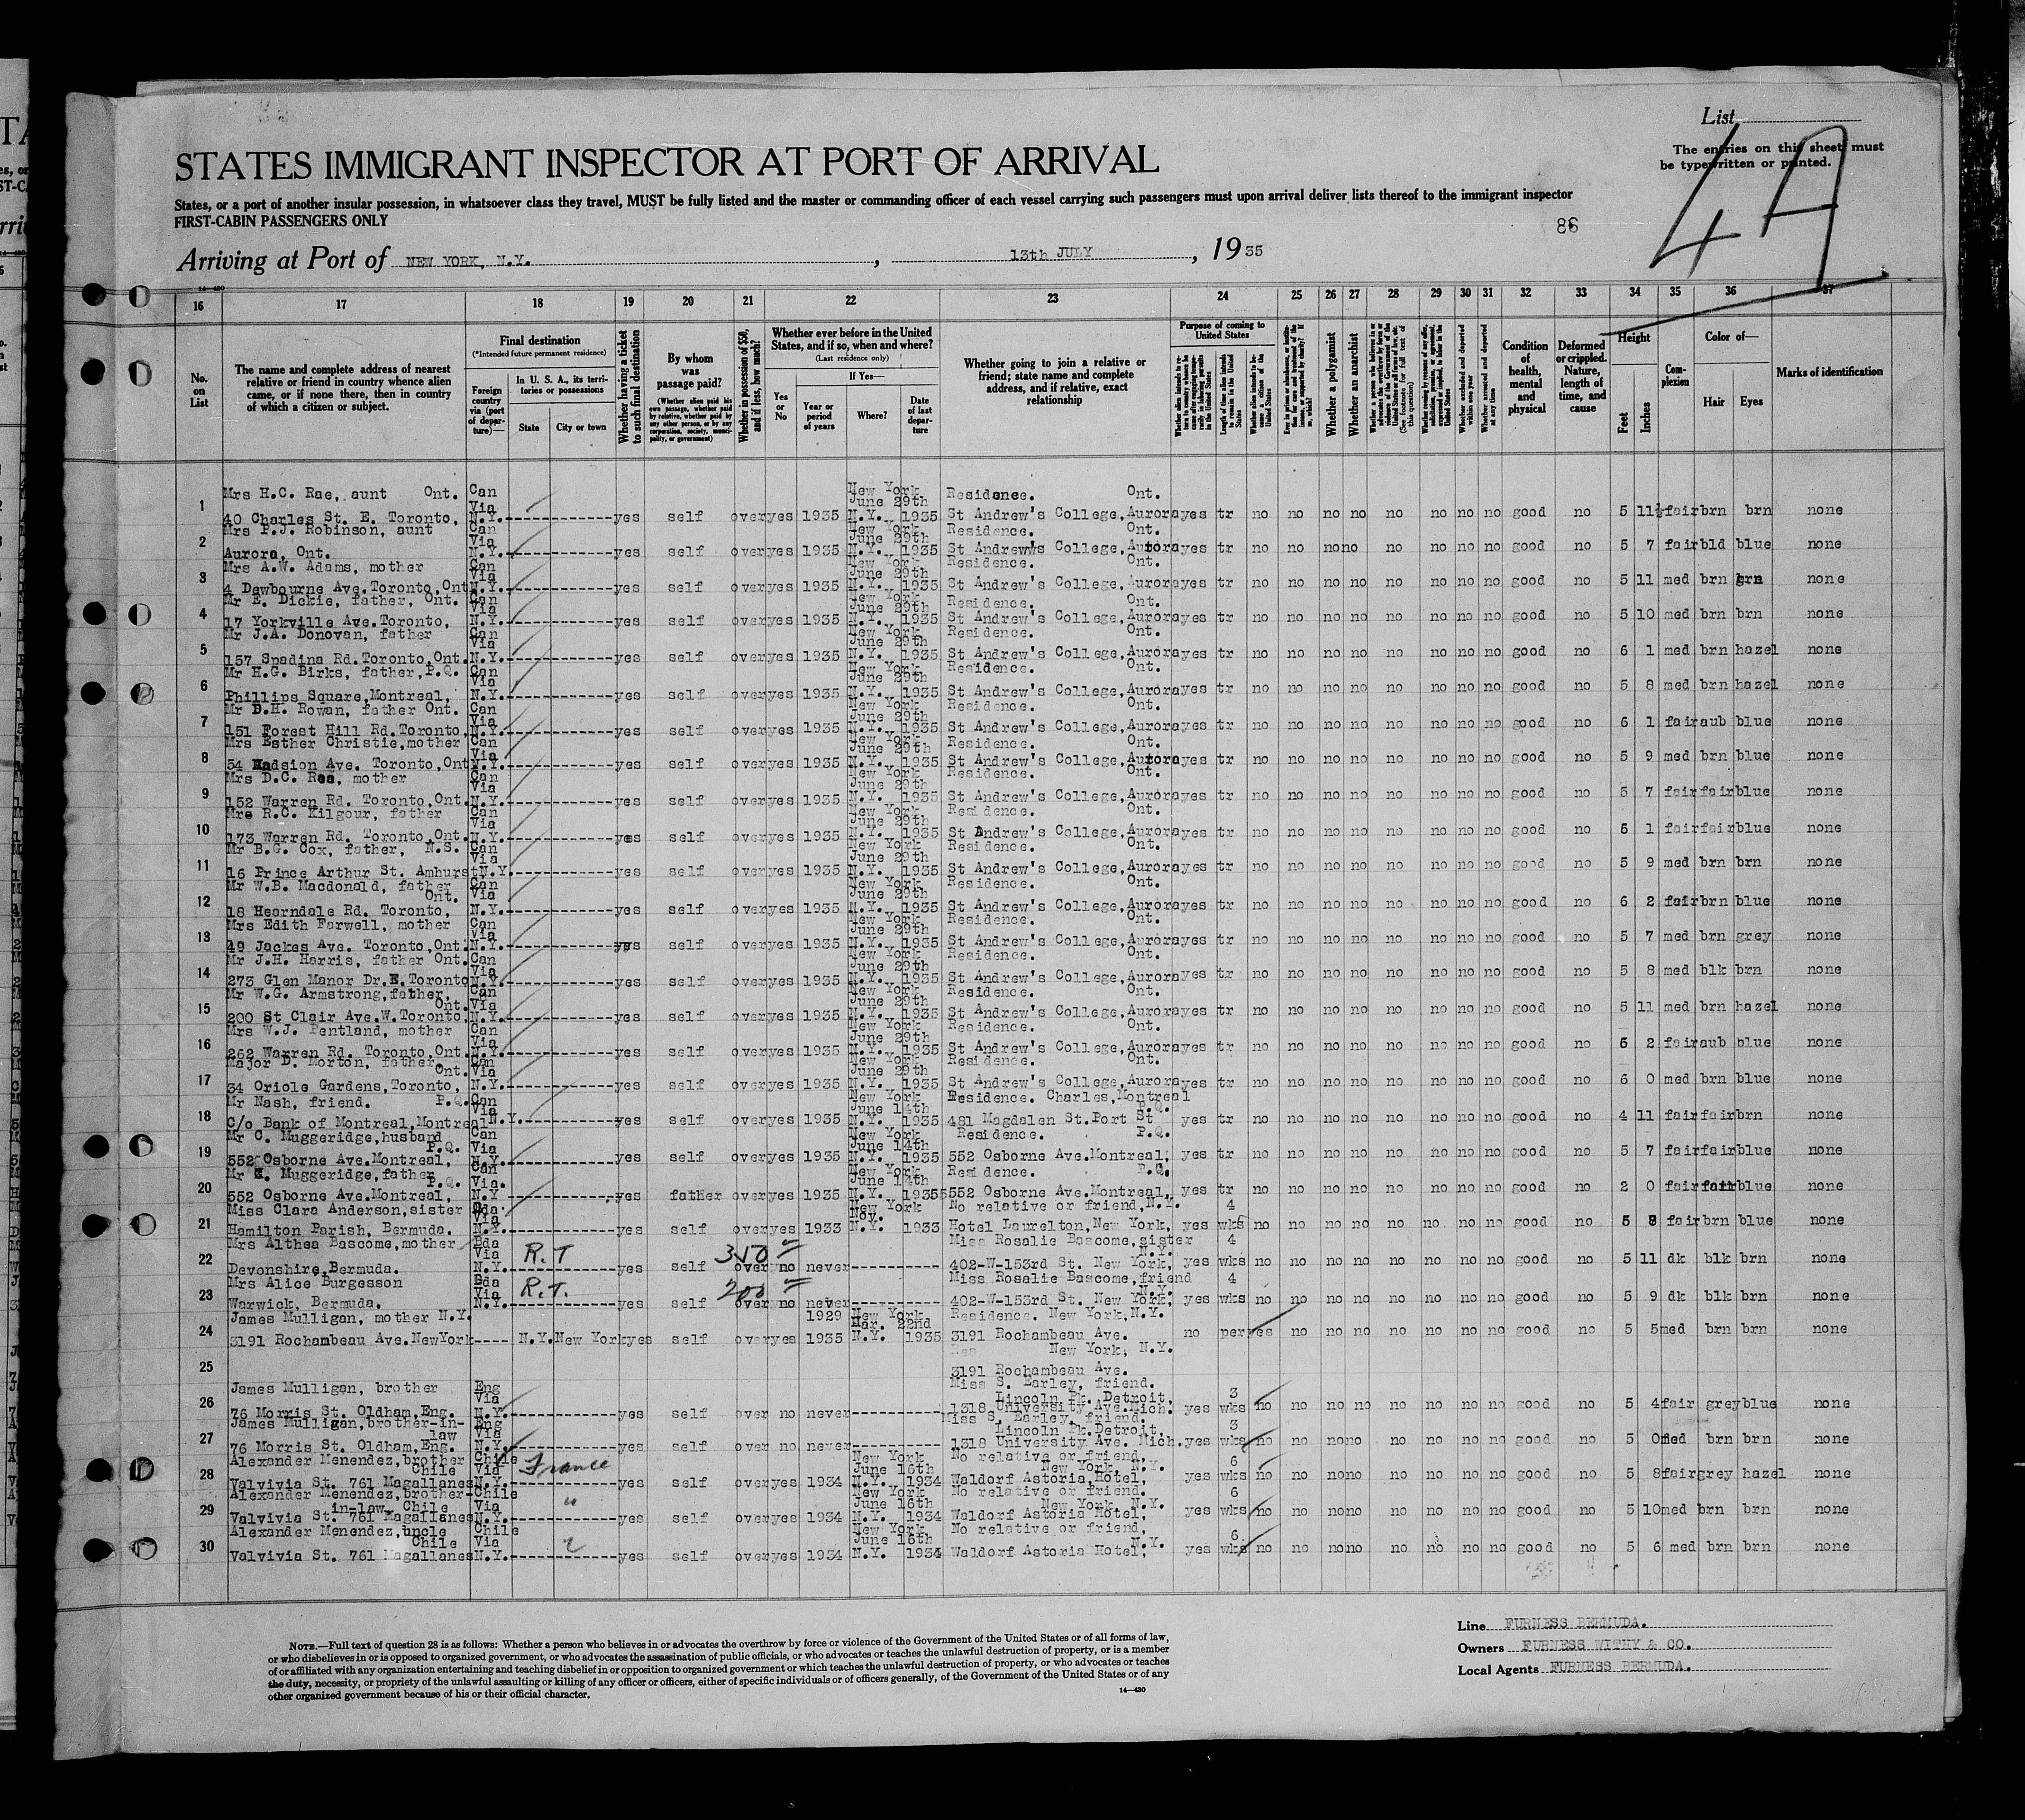 List
The entries on this sheet must
be typewritten or printed.
4A
STATES IMMIGRANT INSPECTOR AT PORT OF ARRIVAL
States, or a port of another insular possession, in whatsoever class they travel, MUST be fully listed and the master or commanding officer of each vessel carrying such passengers must upon arrival deliver lists thereof to the immigrant inspector
FIRST-CABIN PASSENGERS ONLY
86
Arriving at Port of NEW YORK, N.Y. , 13th JULY , 1935
16 17 18 19 20 21 22 23 24 25 26 27 28 29 30 31 32 33 34 35 36 37
No. on List
The name and complete address of nearest relative or friend in country whence alien came, or if none there, then in country of which a citizen or subject.
Final destination
(*Intended future permanent residence)
Foreign country via (port of departure)—
In U. S. A., its territories or possessions
State City or town
Whether having a ticket to such final destination
By whom was passage paid?
(Whether alien paid his own passage, whether paid by relative, whether paid by any other person, or by any corporation, society, municipality, or government)
Whether in possession of $50, and if less, how much?
Whether ever before in the United States, and if so, when and where?
(Last residence only)
Yes or No
If Yes—
Year or period of years
Where?
Date of last departure
Whether going to join a relative or friend; state name and complete address, and if relative, exact relationship
Purpose of coming to United States
Whether a polygamist
Whether an anarchist
Condition of health, mental and physical
Deformed or crippled. Nature, length of time, and cause
Height
Feet Inches
Complexion
Color of—
Hair Eyes
Marks of identification
Mrs H.C. Rae, aunt Ont. Can New York Residence. Ont.
1 Via June 29th
40 Charles St. E. Toronto, N.Y. yes self over yes 1935 N.Y. 1935 St Andrew's College, Aurora yes tr no no no no no no no no good no 5 11½ fair brn brn none
Mrs P.J. Robinson, aunt Can New York Residence. Ont.
2 Via June 29th
Aurora, Ont. N.Y. yes self over yes 1935 N.Y. 1935 St Andreww's College, Aurora yes tr no no no no no no no no good no 5 7 fair bld blue none
Mrs A.W. Adams, mother Can New York Residence. Ont.
3 Via June 29th
4 Dewbourne Ave. Toronto, Ont N.Y. yes self over yes 1935 N.Y. 1935 St Andrew's College, Aurora yes tr no no no no no no no no good no 5 11 med brn none
Mr E. Dickie, father, Ont. Can New York Residence. Ont.
4 Via June 29th
17 Yorkville Ave. Toronto, N.Y. yes self over yes 1935 N.Y. 1935 St Andrew's College, Aurora yes tr no no no no no no no no good no 5 10 med brn brn none
Mr J.A. Donovan, father Can New York Residence. Ont.
5 Via June 29th
157 Spadina Rd. Toronto, Ont. N.Y. yes self over yes 1935 N.Y. 1935 St Andrew's College, Aurora yes tr no no no no no no no no good no 6 1 med brn hazel none
Mr H.G. Birks, father, P.Q. Can New York Residence. Ont.
6 Via June 29th
Phillips Square, Montreal, N.Y. yes self over yes 1935 N.Y. 1935 St Andrew's College, Aurora yes tr no no no no no no no no good no 5 8 med brn hazel none
Mr D.H. Rowan, father Ont. Can New York Residence. Ont.
7 Via June 29th
151 Forest Hill Rd. Toronto, N.Y. yes self over yes 1935 N.Y. 1935 St Andrew's College, Aurora yes tr no no no no no no no no good no 6 1 fair aub blue none
Mrs Esther Christie, mother Can New York Residence. Ont.
8 Via June 29th
54 Madsion Ave. Toronto, Ont N.Y. yes self over yes 1935 N.Y. 1935 St Andrew's College, Aurora yes tr no no no no no no no no good no 5 9 med brn blue none
Mrs D.C. Rea, mother Can New York Residence. Ont.
9 Via June 29th
152 Warren Rd. Toronto, Ont. N.Y. yes self over yes 1935 N.Y. 1935 St Andrew's College, Aurora yes tr no no no no no no no no good no 5 7 fair fair blue none
Mrs R.C. Kilgour, father Can New York Residence. Ont.
10 Via June 29th
173 Warren Rd. Toronto, Ont. N.Y. yes self over yes 1935 N.Y. 1935 St Andrew's College, Aurora yes tr no no no no no no no no good no 1 fair fair blue none
Mr B.G. Cox, father, N.S. Can New York Residence. Ont.
11 Via June 29th
16 Prince Arthur St. Amhurst, N.Y. yes self over yes 1935 N.Y. 1935 St Andrew's College, Aurora yes tr no no no no no no no no good no 5 9 med brn brn none
Mr W.B. Macdonald, father Can New York Residence. Ont.
12 Ont. Via June 29th
18 Hearndale Rd. Toronto, N.Y. yes self over yes 1935 N.Y. 1935 St Andrew's College, Aurora yes tr no no no no no no no no good no 6 2 fair brn blue none
Mrs Edith Farwell, mother Can New York Residence. Ont.
13 Via June 29th
49 Jackes Ave. Toronto, Ont. N.Y. yes self over yes 1935 N.Y. 1935 St Andrew's College, Aurora yes tr no no no no no no no no good no 5 7 med brn grey none
Mr J.H. Harris, father Ont. Can New York Residence. Ont.
14 Via June 29th
273 Glen Manor Dr. E. Toronto N.Y. yes self over yes 1935 N.Y. 1935 St Andrew's College, Aurora yes tr no no no no no no no no good no 5 8 med blk brn none
Mr W.G. Armstrong, father, Can New York Residence. Ont.
15 Ont. Via June 29th
200 St Clair Ave. W. Toronto, N.Y. yes self over yes 1935 N.Y. 1935 St Andrew's College, Aurora yes tr no no no no no no no no good no 5 11 med brn hazel none
Mrs W.J. Pentland, mother Can New York Residence. Ont.
16 Via June 29th
262 Warren Rd. Toronto, Ont. N.Y. yes self over yes 1935 N.Y. 1935 St Andrew's College, Aurora yes tr no no no no no no no no good no 2 fair aub blue none
Major D. Morton, father Can New York Residence. Ont.
17 Ont. Via June 29th
34 Oriole Gardens, Toronto, N.Y. yes self over yes 1935 N.Y. 1935 St Andrew's College, Aurora yes tr no no no no no no no no good no 6 0 med brn blue none
Mr Nash, friend. P.Q. Can New York Residence. Charles, Montreal
18 Via June 14th P.Q.
C/o Bank of Montreal, Montreal N.Y. yes self over yes 1935 N.Y. 1935 481 Magdalen St. Port St yes tr no no no no no no no no good no 4 11 fair fair brn none
Mr C. Muggeridge, husband Can New York Residence. P.Q.
19 P.Q. Via June 14th
552 Osborne Ave. Montreal, N.Y. yes self over yes 1935 N.Y. 1935 552 Osborne Ave. Montreal, yes tr no no no no no no no no good no 5 7 fair fair blue none
Mr Muggeridge, father Can New York Residence. P.Q.
20 P.Q. Via. June 14th
552 Osborne Ave. Montreal, N.Y yes father over yes 1935 N.Y. 1935 552 Osborne Ave. Montreal, yes tr no no no no no no no no good no 2 0 fair fair blue none
Miss Clara Anderson, sister Bda New York No relative or friend, N.Y. 4
21 Via Nov.
Hamilton Parish, Bermuda. N.Y. yes self over yes 1933 N.Y. 1933 Hotel Laurelton, New York, yes wks no no no no no no no no good no 5 8 fair brn blue none
Mrs Althea Bascome, mother Bda Miss Rosalie Bascome, sister 4
22 Via R.T 350 N.Y.
Devonshire, Bermuda. N.Y. yes self over no never 402-W-153rd St. New York, yes wks no no no no no no no no good no 5 11 dk blk brn none
Mrs Alice Burgesson Bda Miss Rosalie Bascome, friend 4
23 Via R.T. 200 N.Y.
Warwick, Bermuda. N.Y. yes self over no never 402-W-153rd St. New York, yes wks no no no no no no no no good no 5 9 dk blk brn none
James Mulligan, mother N.Y. 1929 New York Residence. New York, N.Y.
24 Mar. 22nd
3191 Rochambeau Ave. New York N.Y. New York yes self over yes 1935 N.Y. 1935 3191 Rochambeau Ave. no per yes no no no no no no no good no 5 5 med brn brn none
New York, N.Y.
25
3191 Rochambeau Ave.
James Mulligan, brother Eng Miss S. Earley, friend. 3
26 Via Lincoln Pk. Detroit,
76 Morris St. Oldham, Eng. N.Y. yes self over no never 1318 University Ave. Mich. yes wks no no no no no no no no good no 5 4 fair grey blue none
James Mulligan, brother-in- Eng Miss S. Earley, friend. 3
27 law Via Lincoln Pk. Detroit,
76 Morris St. Oldham, Eng. N.Y. yes self over no never 1318 University Ave. Mich. yes wks no no no no no no no no good no 5 0 med brn brn none
Alexander Menendez, brother Chile New York No relative or friend, 6
28 Chile Via France June 16th New York, N.Y.
Valvivia St. 761 Magallanes N.Y. yes self over yes 1934 N.Y. 1934 Waldorf Astoria Hotel, yes wks no no no no no no no no good no 5 8 fair grey hazel none
Alexander Menendez, brother- Chile New York No relative or friend. 6
29 in-law, Chile Via " June 16th New York, N.Y.
Valvivia St. 761 Magallanes N.Y. yes self over yes 1934 N.Y. 1934 Waldorf Astoria Hotel, yes wks no no no no no no no no good no 5 10 med brn brn none
Alexander Menendez, uncle Chile New York No relative or friend, 6
30 Chile Via June 16th N.Y.
Valvivia St. 761 Magallanes N.Y. yes self over yes 1934 N.Y. 1934 Waldorf Astoria Hotel, yes wks no no no no no no no no good no 5 6 med brn brn none
NOTE.—Full text of question 28 is as follows: Whether a person who believes in or advocates the overthrow by force or violence of the Government of the United States or of all forms of law,
or who disbelieves in or is opposed to organized government, or who advocates the assassination of public officials, or who advocates or teaches the unlawful destruction of property, or is a member
of or affiliated with any organization entertaining and teaching disbelief in or opposition to organized government or which teaches the unlawful destruction of property, or who advocates or teaches
the duty, necessity, or propriety of the unlawful assaulting or killing of any officer or officers, either of specific individuals or of officers generally, of the Government of the United States or of any
other organized government because of his or their official character.
14—430
Line FURNESS BERMUDA.
Owners FURNESS WITHY & CO.
Local Agents FURNESS BERMUDA.